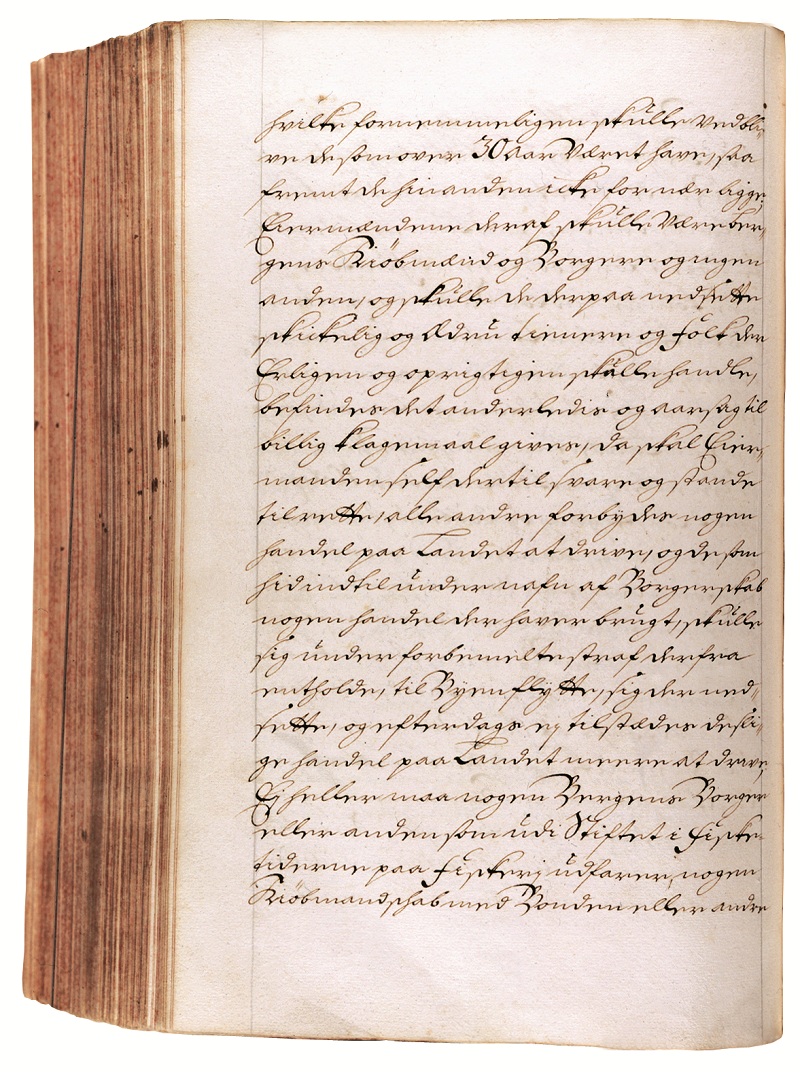 hvilke fornemmeligen skulle vedbli-
ve de som over 30 aar været have, saa
fremt de hinanden icke for nær ligge,
Eiermændene deraf skulle være Ber-
gens Kiöbmænd og Borgere og ingen
anden, og skulle de derpaa nedsette
skickelig og Ædru tienere og folk der
Erligen og oprigtigen skulle handle,
befindes det anderledis og aarsag til
billig klagemaal gives, da skal Eier-
manden self dertil svare og stande
til rette, alle andre forbydes nogen
handel paa Landet at drive, og de som
hid indtil under nafn af Borgerskab
nogen handel der haver brugt, skulle
sig under forbemelte straf derfra
entholde, til Byen flytte, sig der ned-
sette, og efterdags ej tilstædes desli-
ge handel paa Landet meere at drive,
Ej heller maa nogen Bergens Borger
eller anden som udi Stiftet i fiske-
tiderne paa fiskerj udfarer, nogen
Kiöbmandschab med Bonden eller andre